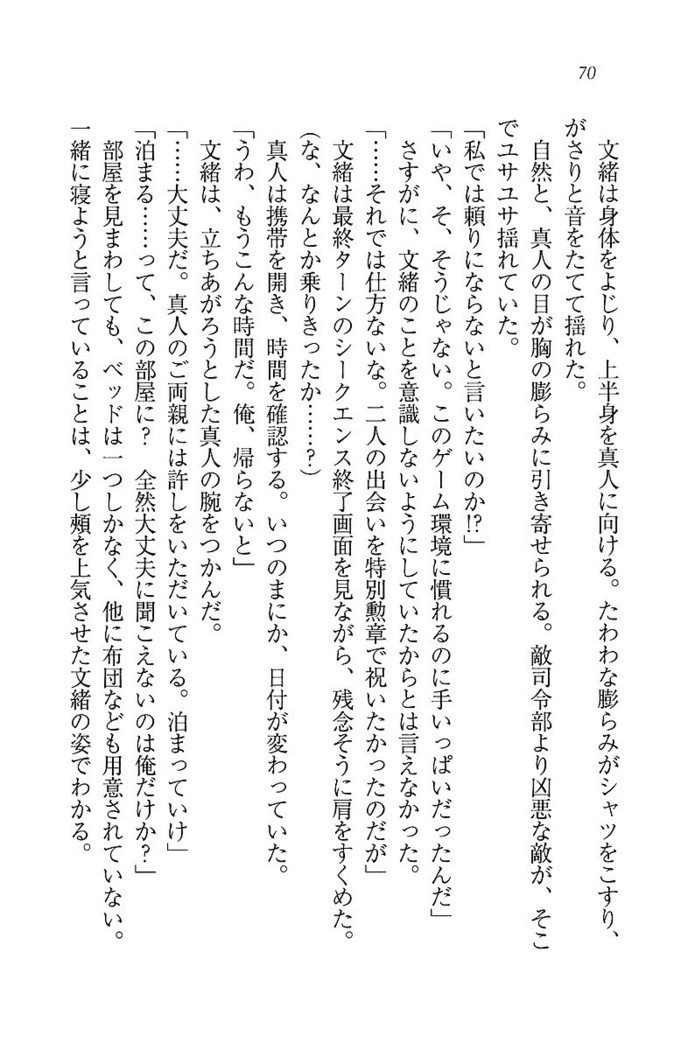 70
文緒は身体をよじり、上半身を真人に向ける。たわわな膨らみがシャツをこすり、
がさりと音をたてて揺れた。
自然と、真人の目が胸の膨らみに引き寄せられる。敵司令部より凶悪な敵が、そこ
でユサユサ揺れていた。
「私では頼りにならないと言いたいのか!?」
「いや、そ、そうじゃない。このゲーム環境に慣れるのに手いっぱいだったんだ」
さすがに、文緒のことを意識しないようにしていたからとは言えなかった。
「……それでは仕方ないな。二人の出会いを特別勲章で祝いたかったのだが」
文緒は最終ターンのシークエンス終了画面を見ながら、残念そうに肩をすくめた。
(な、なんとか乗りきったか……？)
真人は携帯を開き、時間を確認する。いつのまにか、日付が変わっていた。
「うわ、もうこんな時間だ。俺、帰らないと」
文緒は、立ちあがろうとした真人の腕をつかんだ。
「……大丈夫だ。真人のご両親には許しをいただいている。泊まっていけ」
「泊まる……って、この部屋に？　全然大丈夫に聞こえないのは俺だけか？」
部屋を見まわしても、ベッドは一つしかなく、他に布団なども用意されていない。
一緒に寝ようと言っていることは、少し頬を上気させた文緒の姿でわかる。